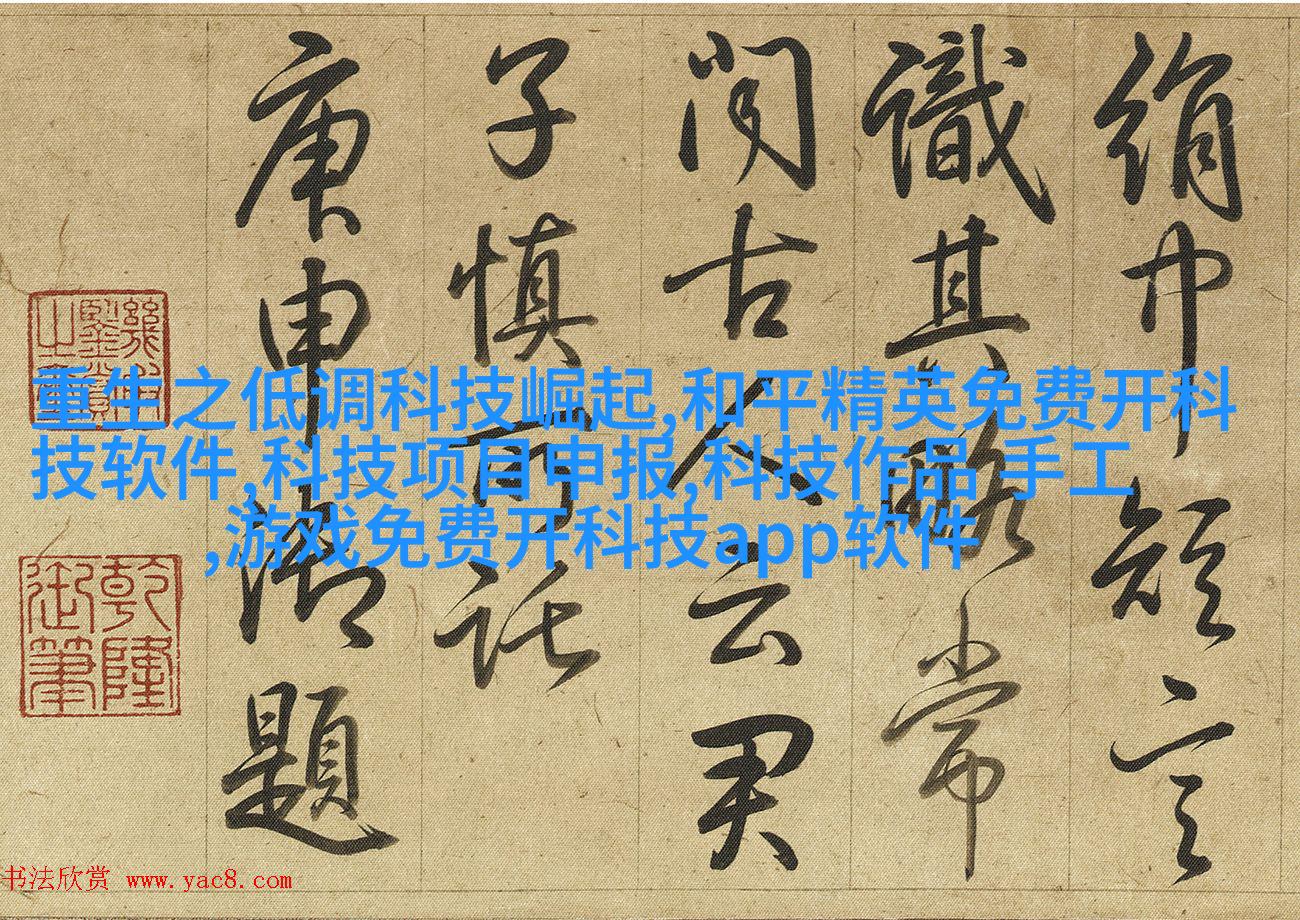 絹言
識其略常
聞古人云君
子慎所託
庚申御題
乾隆
御筆
重生之低调科技崛起,和平精英免费开科
技软件,科技项目申报,科技作品 手工
,游戏免费开科技app软件
书法欣赏 www.yac8.com